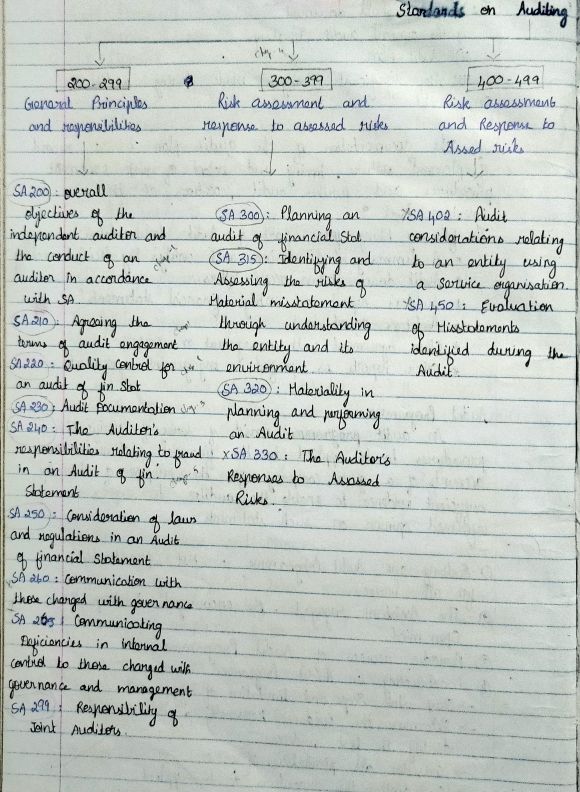 Standards on Auditing
200-299
General Principles
and responsibilities
300-399
Risk assessment and
response to assessed risks
400-499
Risk assessment
and Response to
Assed risks
SA 200: overall
objectives of the
independent auditor and
the conduct of an
auditor in accordance
with SA
SA 210: Agreeing the
terms of audit engagement
SA 220: Quality control for
an audit of fin Stat
SA 230: Audit Documentation
SA 240: The Auditor's
responsibilities relating to fraud
in an Audit of fin.
Statement
SA 250: Consideration of laws
and regulations in an Audit
of financial Statement
SA 260: Communication with
those charged with governance
SA 265: Communicating
Deficiencies in internal
control to those charged with
governance and management
SA 299: Responsibility of
Joint Auditors.
SA 300: Planning an
audit of financial Stat
SA 315: Identifying and
Assessing the risks of
Material misstatement
through understanding
the entity and its
environment.
SA 320: Materiality in
planning and performing
an Audit
xSA 330: The Auditor's
Responses to Assassed
Risks.
SA 402: Audit
considerations relating
to an entity using
a service organisation.
SA 450: Evaluation
of Misstatements
identified during the
Audit.